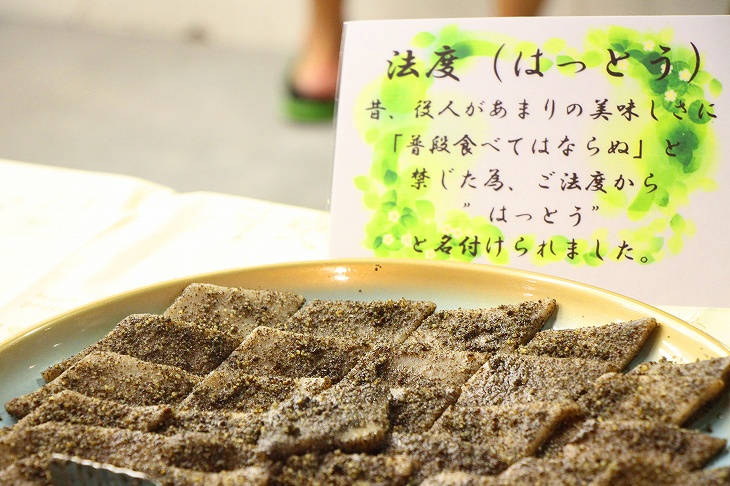 法度（はっとう）
昔、役人があまりの美味しさに
「普段食べてはならぬ」と
禁じた為、ご法度から
”はっとう”
と名付けられました。